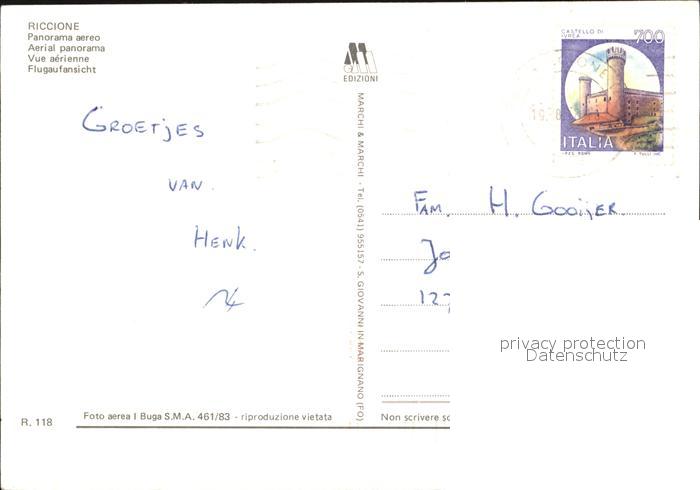 RICCIONE
Panorama aereo
Aerial panorama
Vue aérienne
Flugaufansicht
EDIZIONI
MARCHI & MARCHI - Tel. (0541) 955157 - S. GIOVANNI IN MARIGNANO (FO)
CASTELLO DI
IVREA
700
ITALIA
GROETJES
VAN.
HENK.
FAM. H. GOOIJER.
Jo
127
privacy protection
Datenschutz
R. 118
Foto aerea I Buga S.M.A. 461/83 - riproduzione vietata
Non scrivere